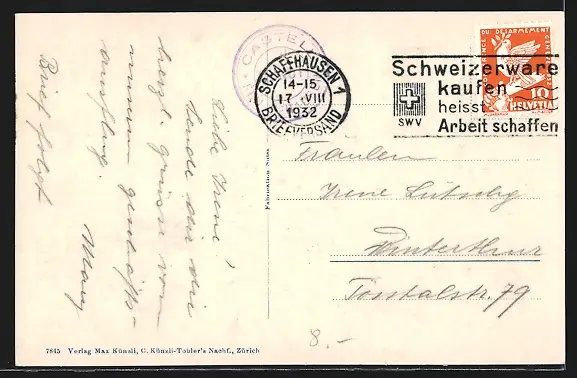 Liebe Irene!
Sende dir die
herzl. Grüsse von
meinem geschäfts-
ausflug.
Brief folgt
Many
CASTELL
SCHAFFHAUSEN 1
14-15
17. VIII
1932
BRIEFVERSAND
Schweizerware
kaufen
heisst
Arbeit schaffen
SWV
DU DÉSARMEMENT
10
HELVETIA
Fräulein
Irene Lütschg
Winterthur
Tösstalstr. 79
8.-
7845 Verlag Max Künzli, C. Künzli-Tobler's Nachf., Zürich